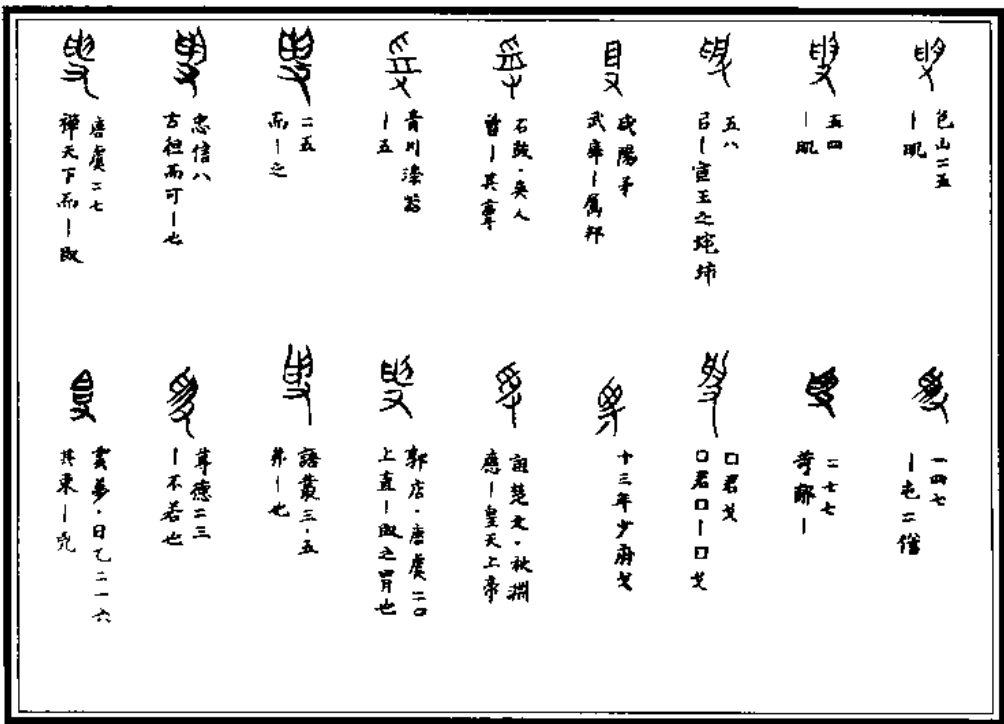 包山二五
｜
五四
｜
五八
｜宣王之
咸陽矛
武庫｜屬邦
石鼓·吳人
曾｜其享
青川漆
｜五
二五
而｜之
忠信八
古徂而可｜也
唐虞二七
禪天下而｜臤
一四七
｜屯二儋
二七七
苛｜
□君戈
□君□｜□戈
十三年少府戈
詛楚文·秋淵
應｜皇天上帝
郭店·唐虞二〇
上直｜臤之胃也
語叢三·五
弗｜也
尊德二三
｜不若也
雲夢·日乙二一六
其東｜兇